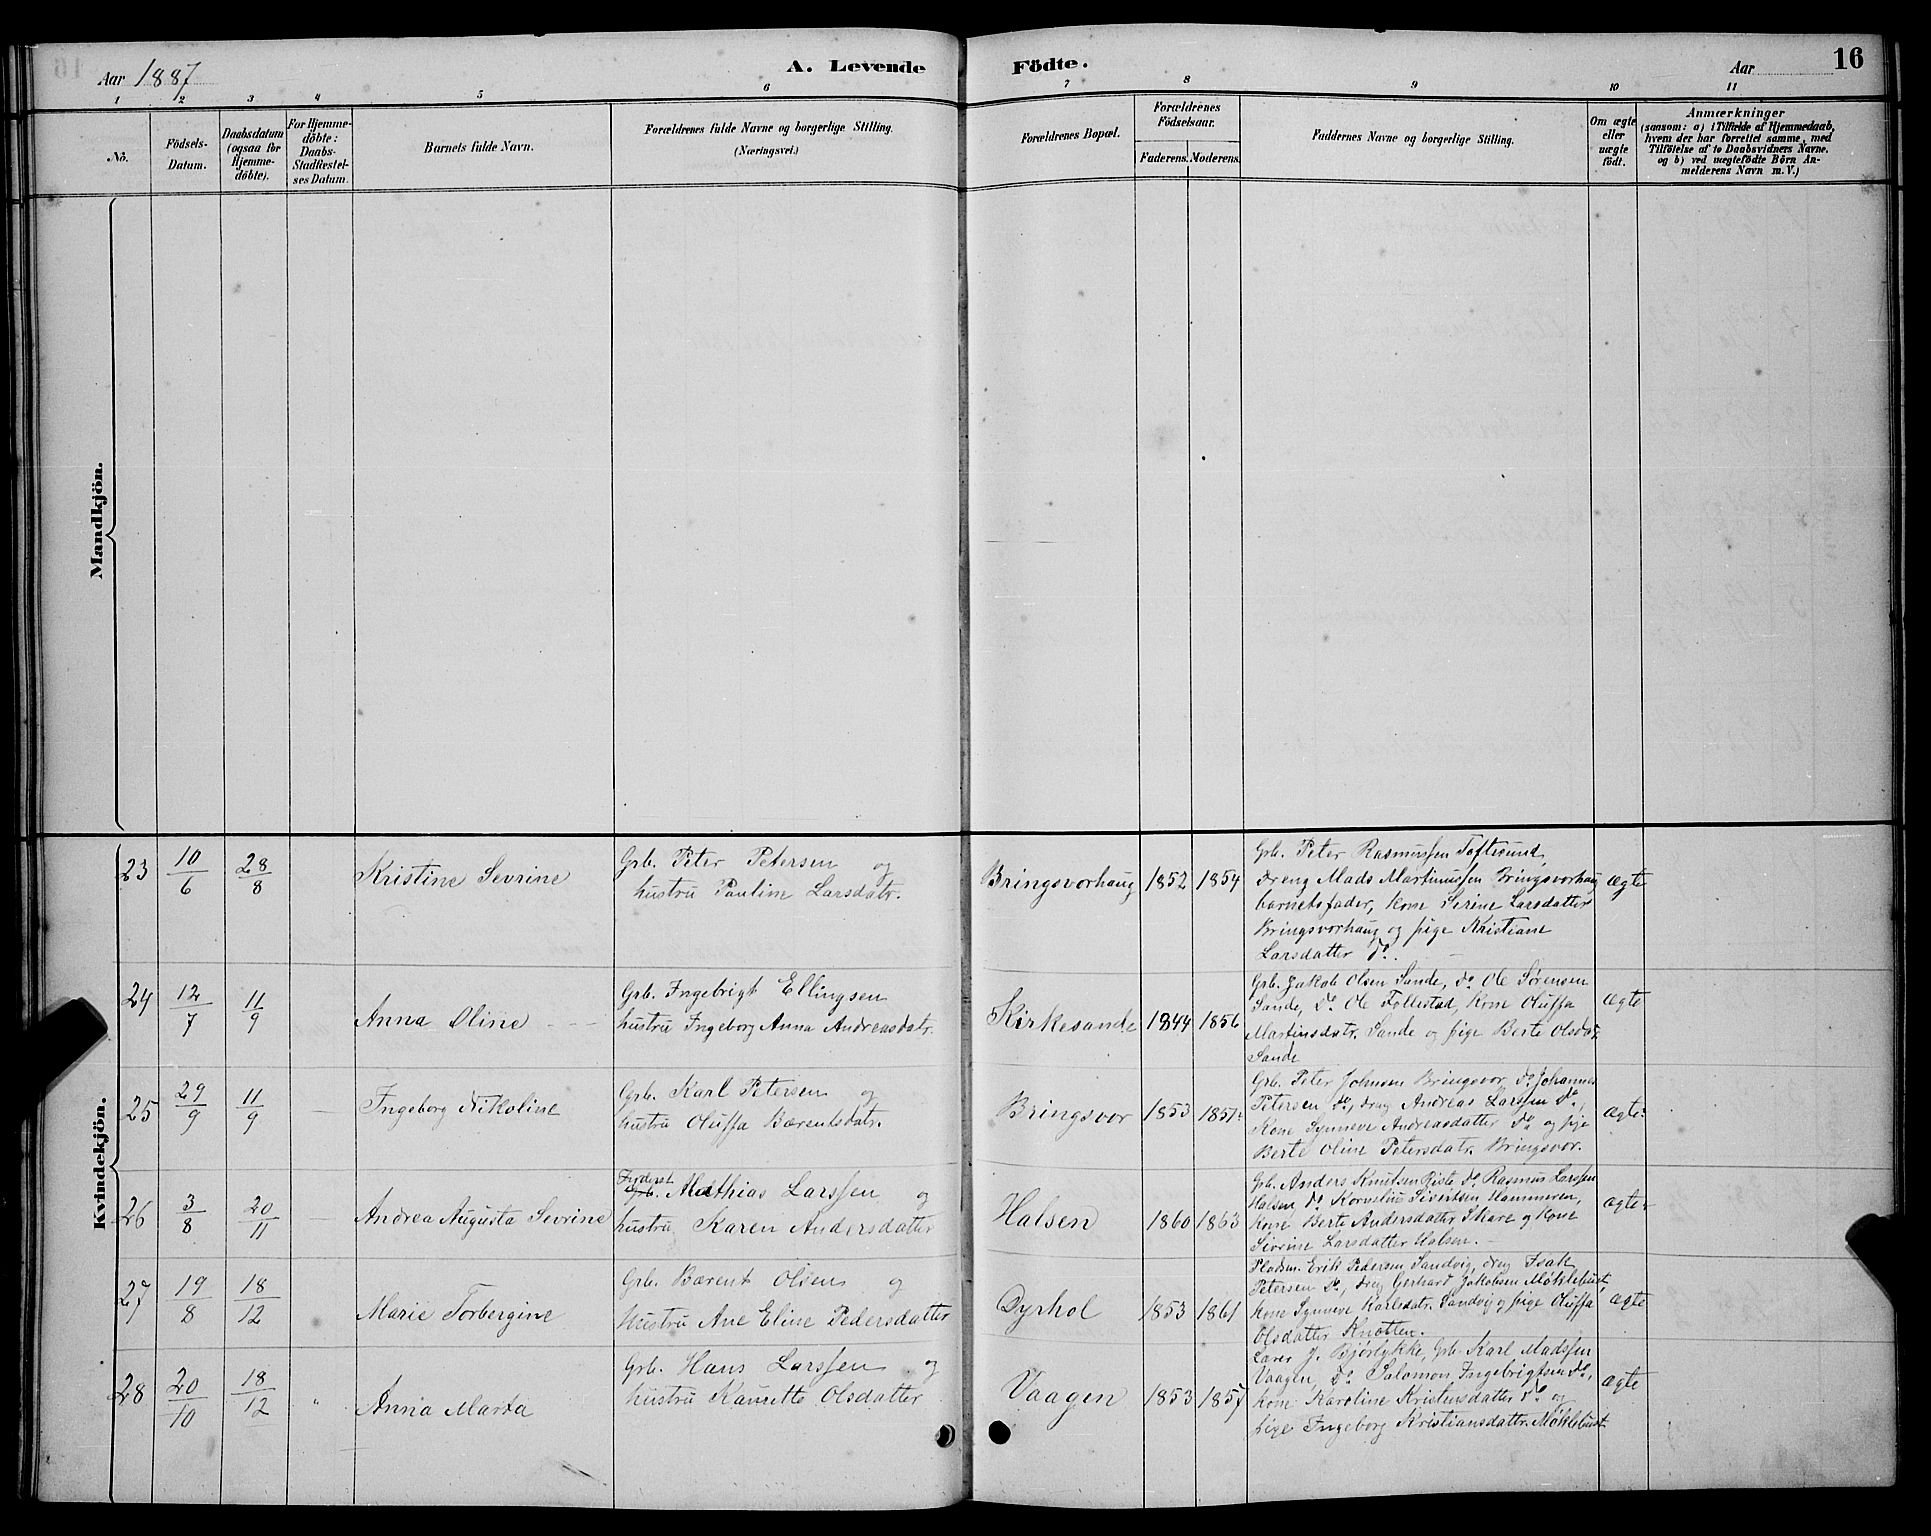 Aar 1887 A. Levende Födte. Aar 16
1 2 3 4 5 6 7 8 9 10 11
No.
Födsels-
Datum.
Daabsdatum
(ogsaa for
Hjemme-
döbte).
For Hjemme-
döbte:
Daabs-
Stadfæstel-
ses Datum.
Barnets fulde Navn.
Forældrenes fulde Navne og borgerlige Stilling.
(Næringsvei.)
Forældrenes Bopæl.
Forældrenes
Födselsaar.
Faderens. Moderens.
Faddernes Navne og borgerlige Stilling.
Om ægte
eller
uægte
födt.
Anmærkninger
(saasom: a) i Tilfælde af Hjemmedaab,
hvem der har forrettet samme, med
Tilföielse af to Daabsvidners Navne.
og b) ved uægtefödte Börn An-
melderens Navn m. V.)
Mandkjön.
Kvindekjön.
23 10/6 28/8 Kristine Sevrine
Grb. Peter Petersen og
hustru Pauline Larsdatr.
Bringsvorhaug 1852 1854
Grb. Peter Rasmussen Toftesund,
dreng Mads Martinussen Bringsvorhaug
barnets fader, kone Serine Larsdatter
Bringsvorhaug og pige Kristiane
Larsdatter do.
ægte
24 12/7 11/9 Anna Oline
Grb. Ingebrigt Ellingsen
hustru Ingeborg Anna Andreasdatr.
Kirkesande 1844 1856
Grb. Jakob Olsen Sande, do. Ole Sørensen
Sande, do. Ole Follestad, kone Oluffa
Martinsdatr. Sande og pige Berte Olsdatr.
Sande
ægte
25 29/9 11/9 – Ingeborg Nikoline
Grb. Karl Petersen og
hustru Oluffa Bærentsdatr.
Bringsvor 1853 1851.
Grb. Peter Johnsen Bringsvor, do. Johannes
Petersen do., drng Andreas Larssen do.,
Kone Synneve Andreasdatter do. og pije
Berte Oline Petersdatr. Bringsvor.
ægte.
26 3/8 20/11 – Andrea Augusta Sevrine
Grb. Mathias Larssen og
hustru Karen Andersdatter
Halsen 1860 1863
Grb. Anders Knutsen Riste do. Rasmus Larssen
Halsen, do. Kornelius Sivertsen Hammeren,
kone Berte Andersdatter Skare og kone
Sivrine Larsdatter Halsen.
ægte.
27 19/8 18/12 Marie Torbergine
Grb. Bærent Olsen og
hustru Ane Eline Pedersdatter
Dyrhol 1853 1861
Pladsm. Erik Pedersen Sandvig, drng Isak
Petersen do., drng Gerhard Jakobsen Møklebust,
kone Synneve Karlsdatr. Sandvig og pige Oluffa
Olsdatter Knotten.
ægte
28 20/10 18/12 " Anna Marta
Grb. Hans Larssen og
hustru Olsdatter
Vaagen 1853 1857
Lærer J. Bjørlykke, Grb. Karl Madssen
Vaagen, do. Salomon Ingebrigtsen do.,
kone Karoline Kristensdatter do. og
pige Ingeborg Kristiansdattr. Møklebust
ægte